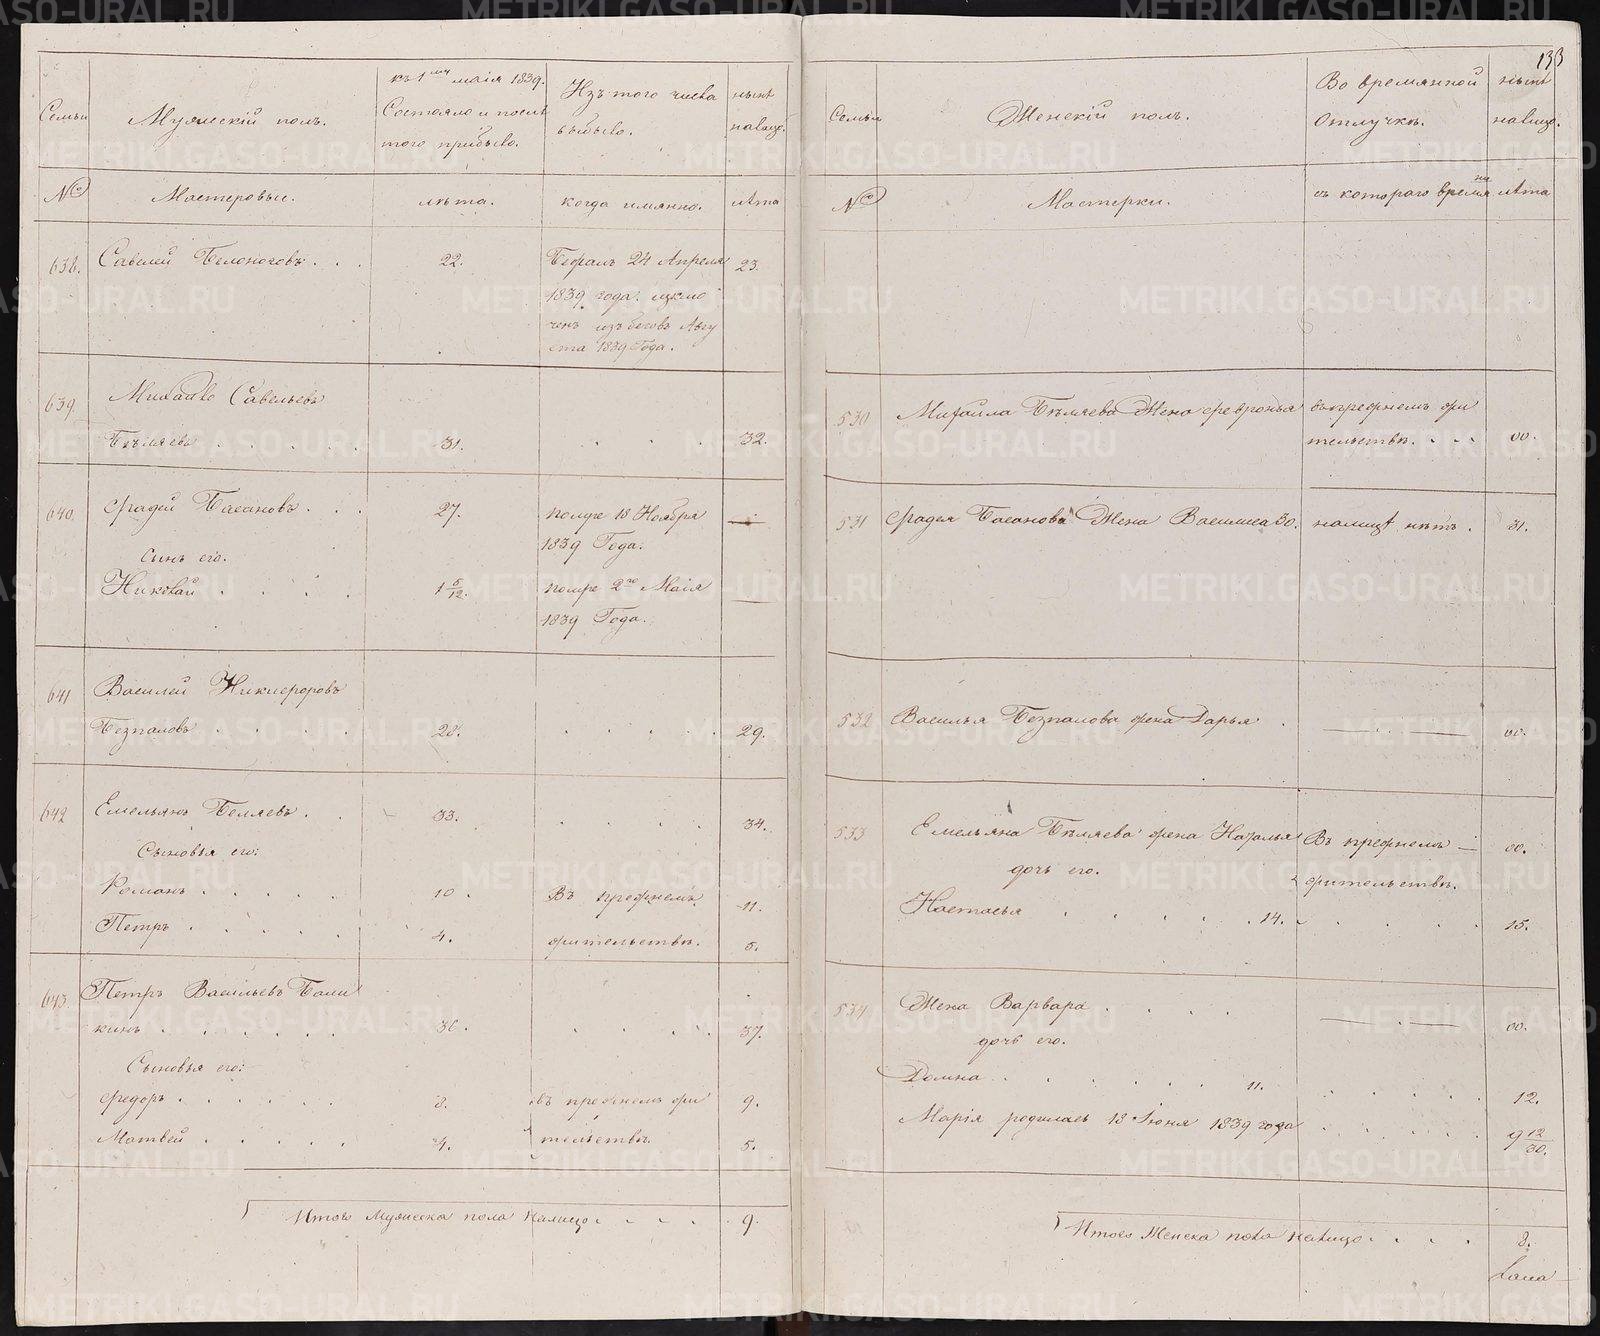 133
Семьи
Мужескій полъ.
къ 1му маія 1839.
Состояло и послѣ
того прибыло.
Изъ того числа
выбыло.
нынѣ
налицо.
№
Мастеровые.
лѣта.
когда имянно.
лѣта
638.
Савелей Белоноговъ . . .
22.
Бежалъ 24 Апреля
1839 года. исклю
ченъ изъ беговъ Авгу
ста 1839 Года.
23.
639.
Михайло Савельевъ
Бѣляевъ . . . . . .
31.
32.
640.
Фадей Басановъ . . .
27.
помре 18 Ноября
1839 Года.
—
Сынъ его.
Николай . . . .
1 5/12.
помре 2го Маія
1839 Года.
—
641
Василей Никифоровъ
Безпаловъ . . . . .
28.
29.
642
Емельянъ Беляевъ . .
33.
34.
Сыновья его:
Романъ . . . .
10.
Въ прежнемъ
11.
Петръ . . . . .
4.
жительствѣ.
5.
643.
Петръ Васильевъ Бали
кинъ . . . . . .
36.
37.
Сыновья его:
Федоръ . . . . .
8.
въ прежнемъ жи
9.
Матвей . . . . .
4.
тельствѣ
5.
Итого Мужеска пола налицо . . . .
9.
Семьи
Женскій полъ.
Во времянной
отлучкѣ.
нынѣ
налицо.
№
Мастерки.
съ котораго время
на
лѣта
530
Михайла Бѣляева Жена Февронья
въ прежнемъ жи
тельствѣ. . . .
00.
531
Фадея Басанова Жена Василиса 30.
налицо нѣтъ .
31.
532
Василья Безпалова жена Дарья .
— . —
00.
533
Емельяна Бѣляева жена Наталья
Въ прежнемъ —
00.
дочь его.
жительствѣ.
Настасья . . . . . 14.
15.
534
Жена Варвара . . . .
— . —
00.
дочь его.
Домна . . . . . . 11.
12.
Марія родилась 18 Июня 1839 года
9 12/30.
Итого Женска пола налицо . . . .
8.